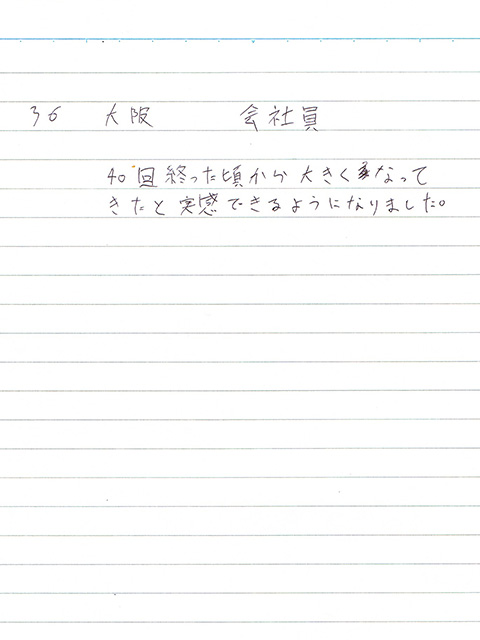 36 大阪 会社員
40回終った頃から大きくなって
きたと実感できるようになりました。